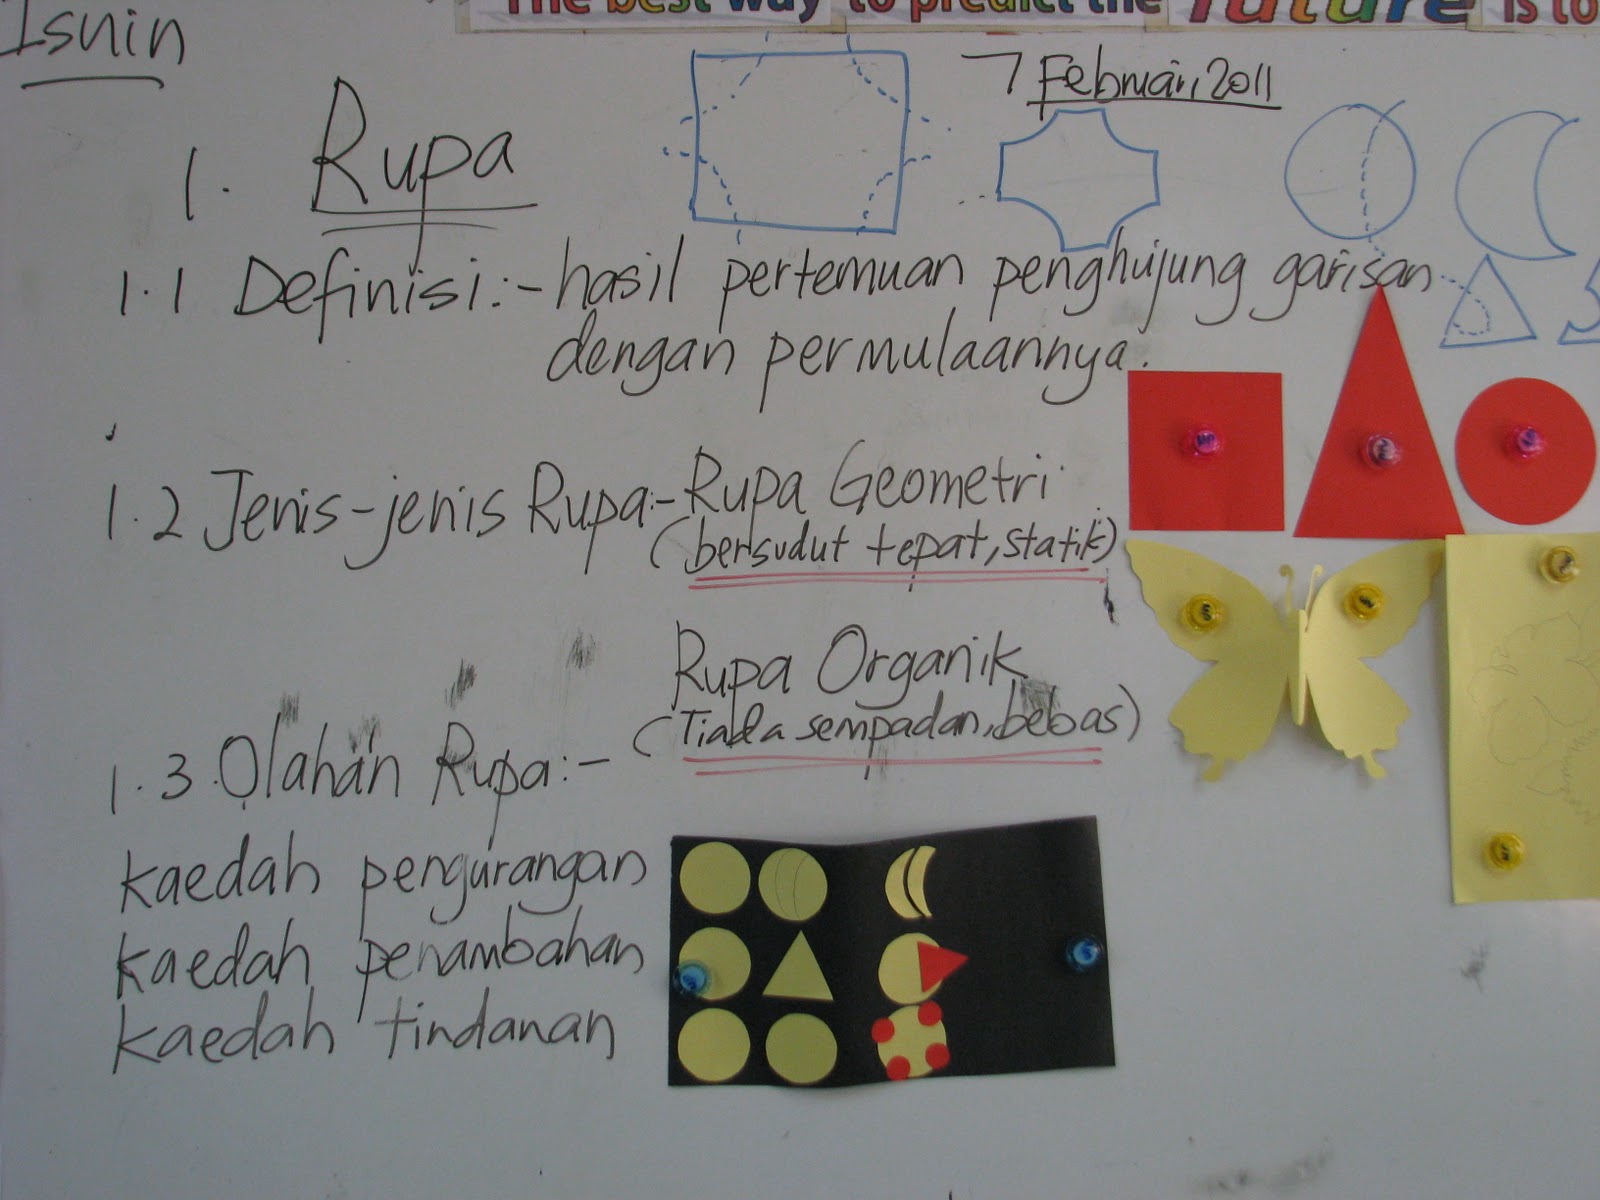 The best way to predict the future is to
Isnin
7 Februari 2011
1. Rupa
1.1 Definisi:- hasil pertemuan penghujung garisan
dengan permulaannya.
1.2 Jenis-jenis Rupa:- Rupa Geometri
(bersudut tepat, statik)
Rupa Organik
(Tiada sempadan, bebas)
1.3 Olahan Rupa:-
kaedah pengurangan
kaedah penambahan
kaedah tindanan